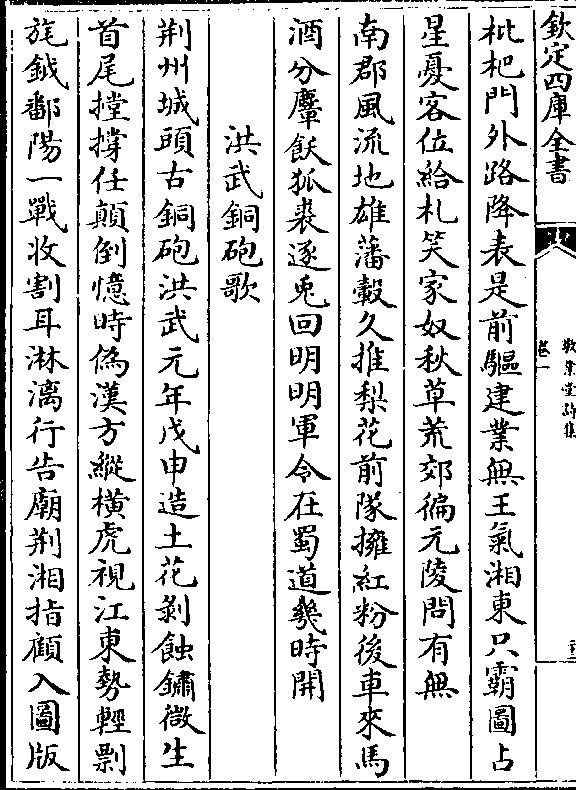 欽定四庫全書
敬業堂詩集
卷一
枇杷門外路降表是前驅建業無王氣湘東只霸圖占
星憂客位給札笑家奴秋草荒郊徧元陵問有無
南郡風流地雄藩轂久推梨花前隊擁紅粉後車來馬
酒分麞飫狐裘逐兎回明明軍令在蜀道幾時開
洪武銅砲歌
荆州城頭古銅砲洪武元年戊申造土花剝蝕鏽微生
首尾摚撐任顛倒憶時偽漢方縱橫虎視江東勢輕剽
旄鉞鄱陽一戰收割耳淋漓行告廟荆湘指顧入圖版